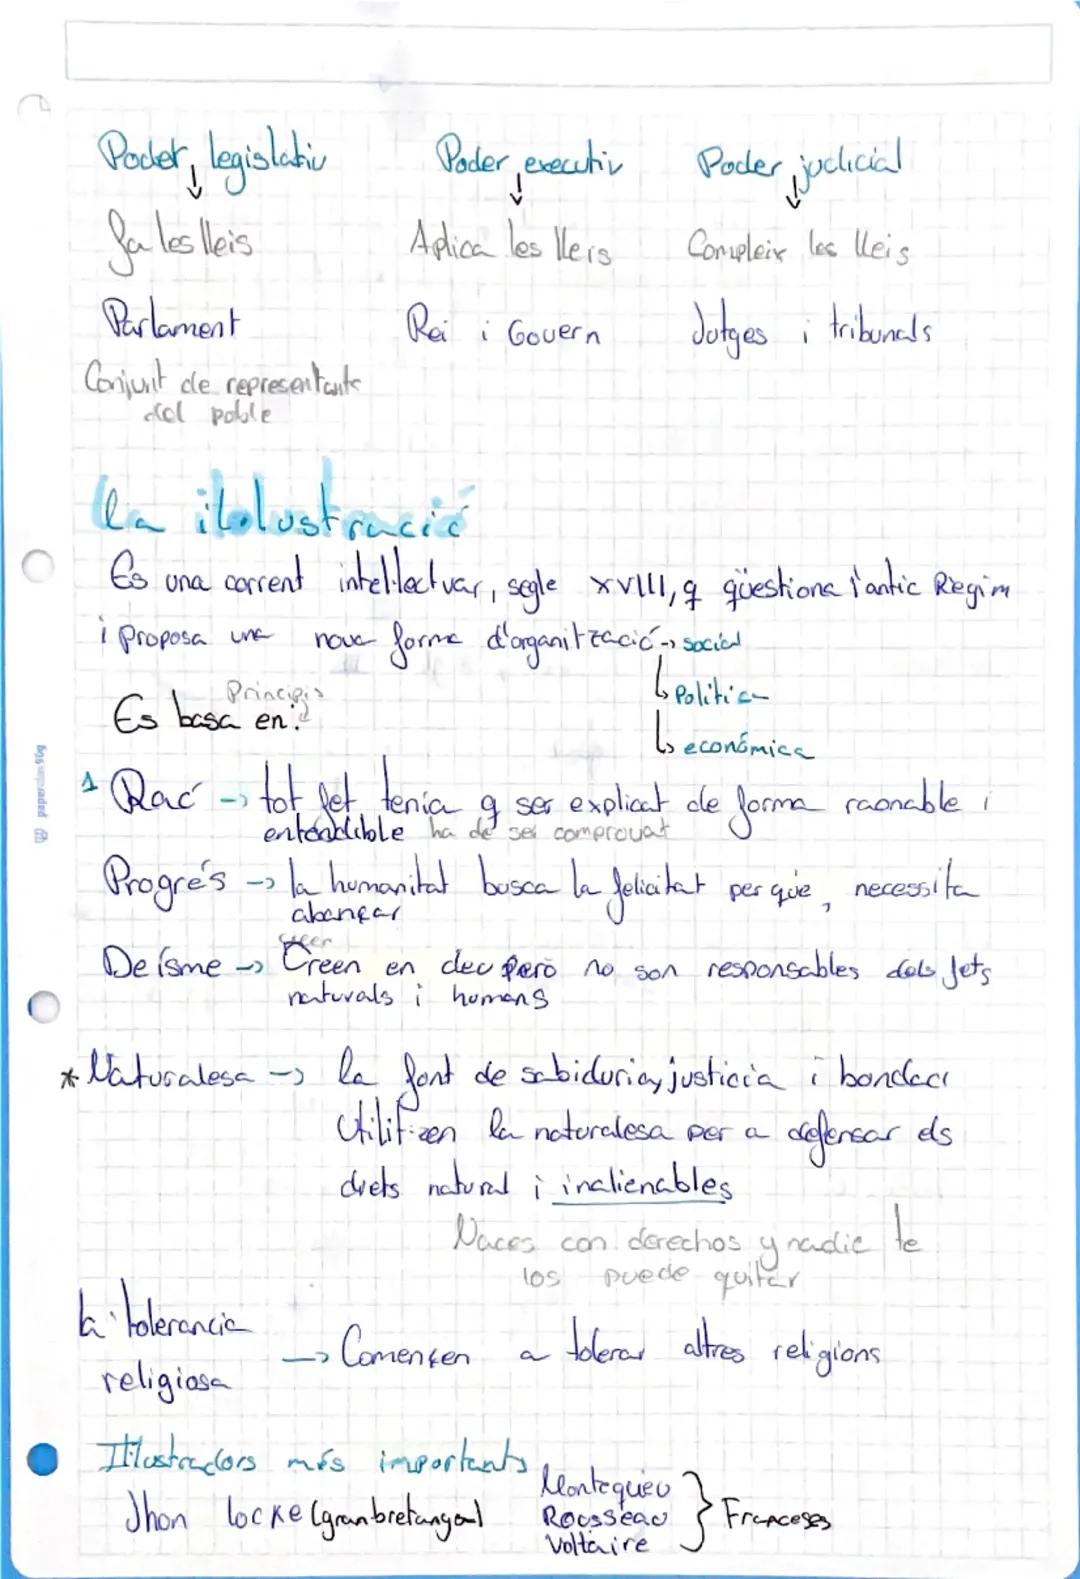 Poder legislatiu Poder executiv Poder judicial
↓ ↓ ↓
fa les lleis Aplica les lleis Compleix les lleis
Parlament Rei i Govern Jutges i tribunals
Conjunt de representants
del poble
la il·lustració
Es una corrent intel·lectuar, segle XVIII, q qüestiona l'antic Riegim
i proposa una nova forma d'organització -> social
↳ Política
↳ económica
Principis
Es basa en:
1 Raó -> tot fet tenia q ser explicat de forma raonable i
entendible ha de ser comprovat
Progrés -> la humanitat busca la felicitat per que, necessita
abançar
Creer
Deísme -> Creen en deu però no son responsables dels fets
naturals i humans
* Naturalesa -> la font de sabiduria, justicia i bondad
Utilitzen la naturalesa per a defensar els
drets natural i inalienables
Naces con derechos y nadie te
los puede quitar
la tolerancia
religiosa -> Comencen a tolerar altres religions
Il·lustradors més importants
Jhon locke (granbretanya)
Montequieu
Rousseau
Voltaire
} Franceses
paperclass 90g